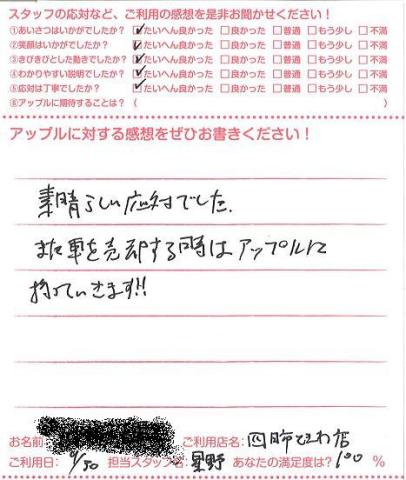 スタッフの応対など、ご利用の感想を是非お聞かせください！
①あいさつはいかがでしたか？ ☑たいへん良かった □良かった □普通 □もう少し □不満
②笑顔はいかがでしたか？ ☑たいへん良かった □良かった □普通 □もう少し □不満
③きびきびとした動きでしたか？ ☑たいへん良かった □良かった □普通 □もう少し □不満
④わかりやすい説明でしたか？ ☑たいへん良かった □良かった □普通 □もう少し □不満
⑤応対は丁寧でしたか？ ☑たいへん良かった □良かった □普通 □もう少し □不満
⑥アップルに期待することは？（ ）
アップルに対する感想をぜひお書きください！
素晴らしい応対でした.
また車を売却する時はアップルに
持っていきます!!
お名前 ご利用店名： 四日市ときわ店
ご利用日： 9/30 担当スタッフ名： 星野 あなたの満足度は？ 100 %